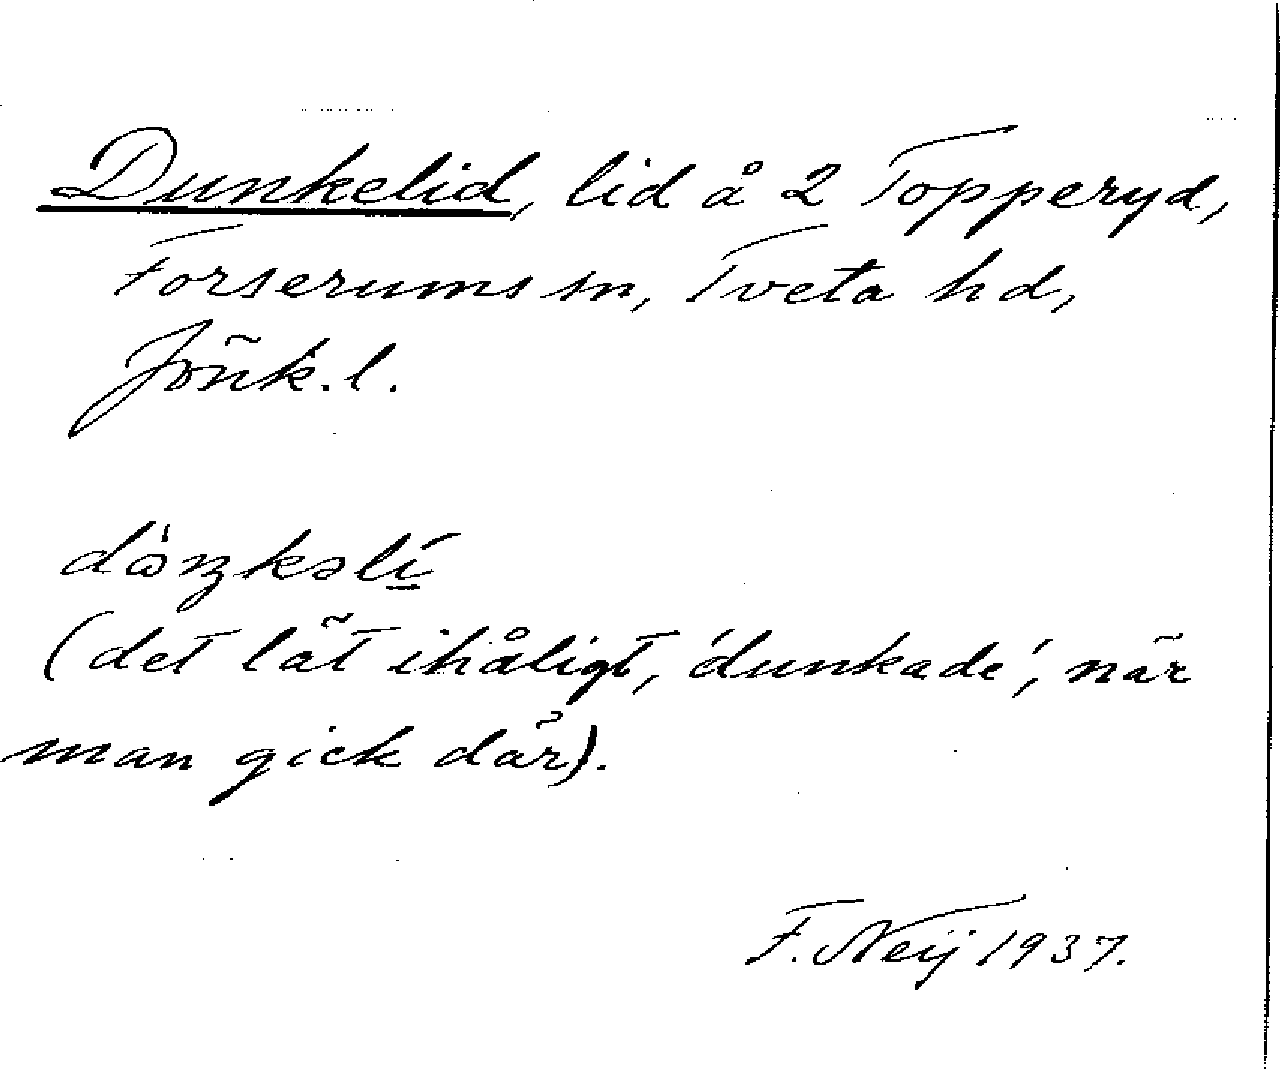 Dunkelid, lid å 2 Topperyd,
Forserums sn, Tveta hd,
Jönk. l.
(det lät ihåligt, 'dunkade', när
man gick där).
F. Neij 1937.